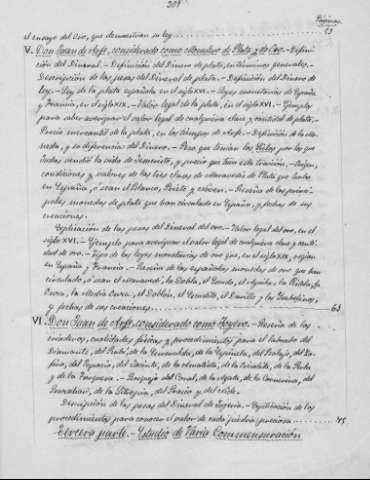 204
Páginas
el ensayo del Oro, que demuestran su ley 53
V. Don Juan de Arfe, considerado como Marcador de Plata y de Oro. - Defini-
ción del Dineral. - Definición del Dinero de plata, en términos generales. -
Descripción de las pesas del Dineral de plata. - Definición del Dinero de
ley. - Ley de la plata española en el siglo XVI. - Leyes monetarias de España
y Francia, en el siglo XIX. - Valor legal de la plata, en el siglo XVI. - Ejemplos
para saber averiguar el valor legal de cualquiera clase y cantidad de plata.
Precio mercantil de la plata, en los tiempos de Arfe. - Definición de la mo-
neda, y su diferencia del Dinero. - Peso que tenían los Siclos por los que
Judas vendió la vida de Jesucristo, y precio que tuvo esta traición. - Origen,
condiciones y valores de las tres clases de maravedís de Plata que hubo
en España, ó sean el Blanco, Prieto y Novén. - Reseña de las princi-
pales monedas de plata que han circulado en España, y fechas de sus
creaciones.
Explicación de las pesas del Dineral del oro. - Valor legal del oro, en el
siglo XVI. - Ejemplo para averiguar el valor legal de cualquiera clase y canti-
dad de oro. - Tipo de las leyes monetarias de oro que, en el siglo XIX, regían
en España y Francia. - Reseña de las españolas monedas de oro que han
circulado, ó sean el Maravedí, la Dobla, el
y fechas de sus creaciones 63
VI. Don Juan de Arfe, considerado como Joyero. - Reseña de los
criaderos, cualidades físicas y procedimientos para el labrado del
Diamante, del Rubí, de la Esmeralda, de la Espinela, del Balaje, del Za-
firo, del Topacio, del Jacinto, de la Amatista, de la Crisólita, de la Perla
y de la Turquesa. - del Coral, de la Agata, de la Cornerina, del
de la del y del
Descripción de las pesas del Dineral de Joyería. - Explicación de los
procedimientos para conocer el valor de cada piedra preciosa 75
Tercera parte. - Estudio de Varia Commensuración